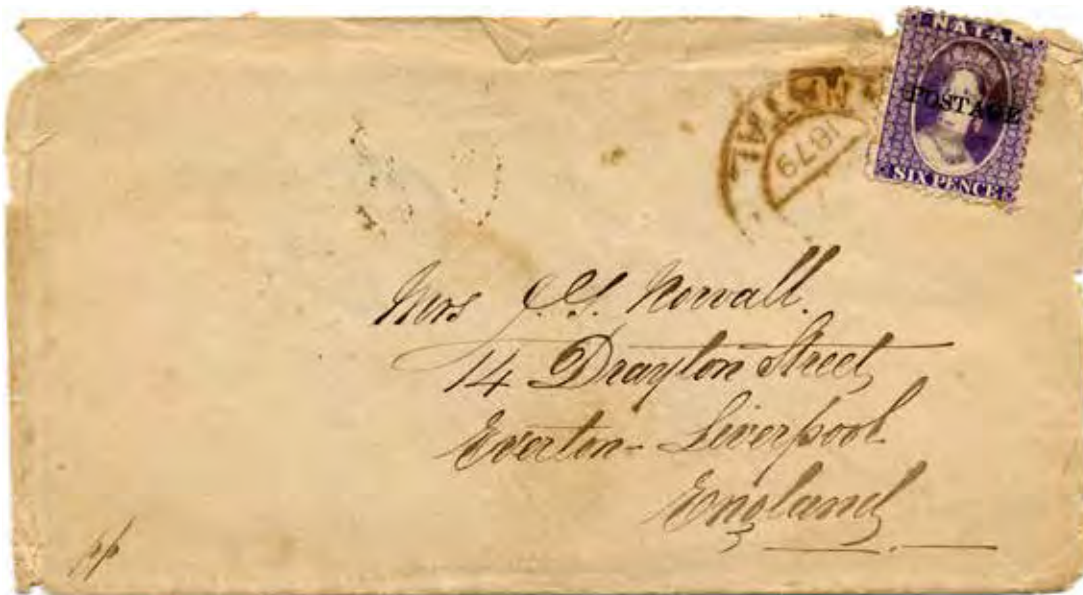 NATAL
POSTAGE
SIX PENCE
NATAL
1879
Mrs J.S. Norvall.
14 Drayton Street
Everton - Liverpool
England
pp